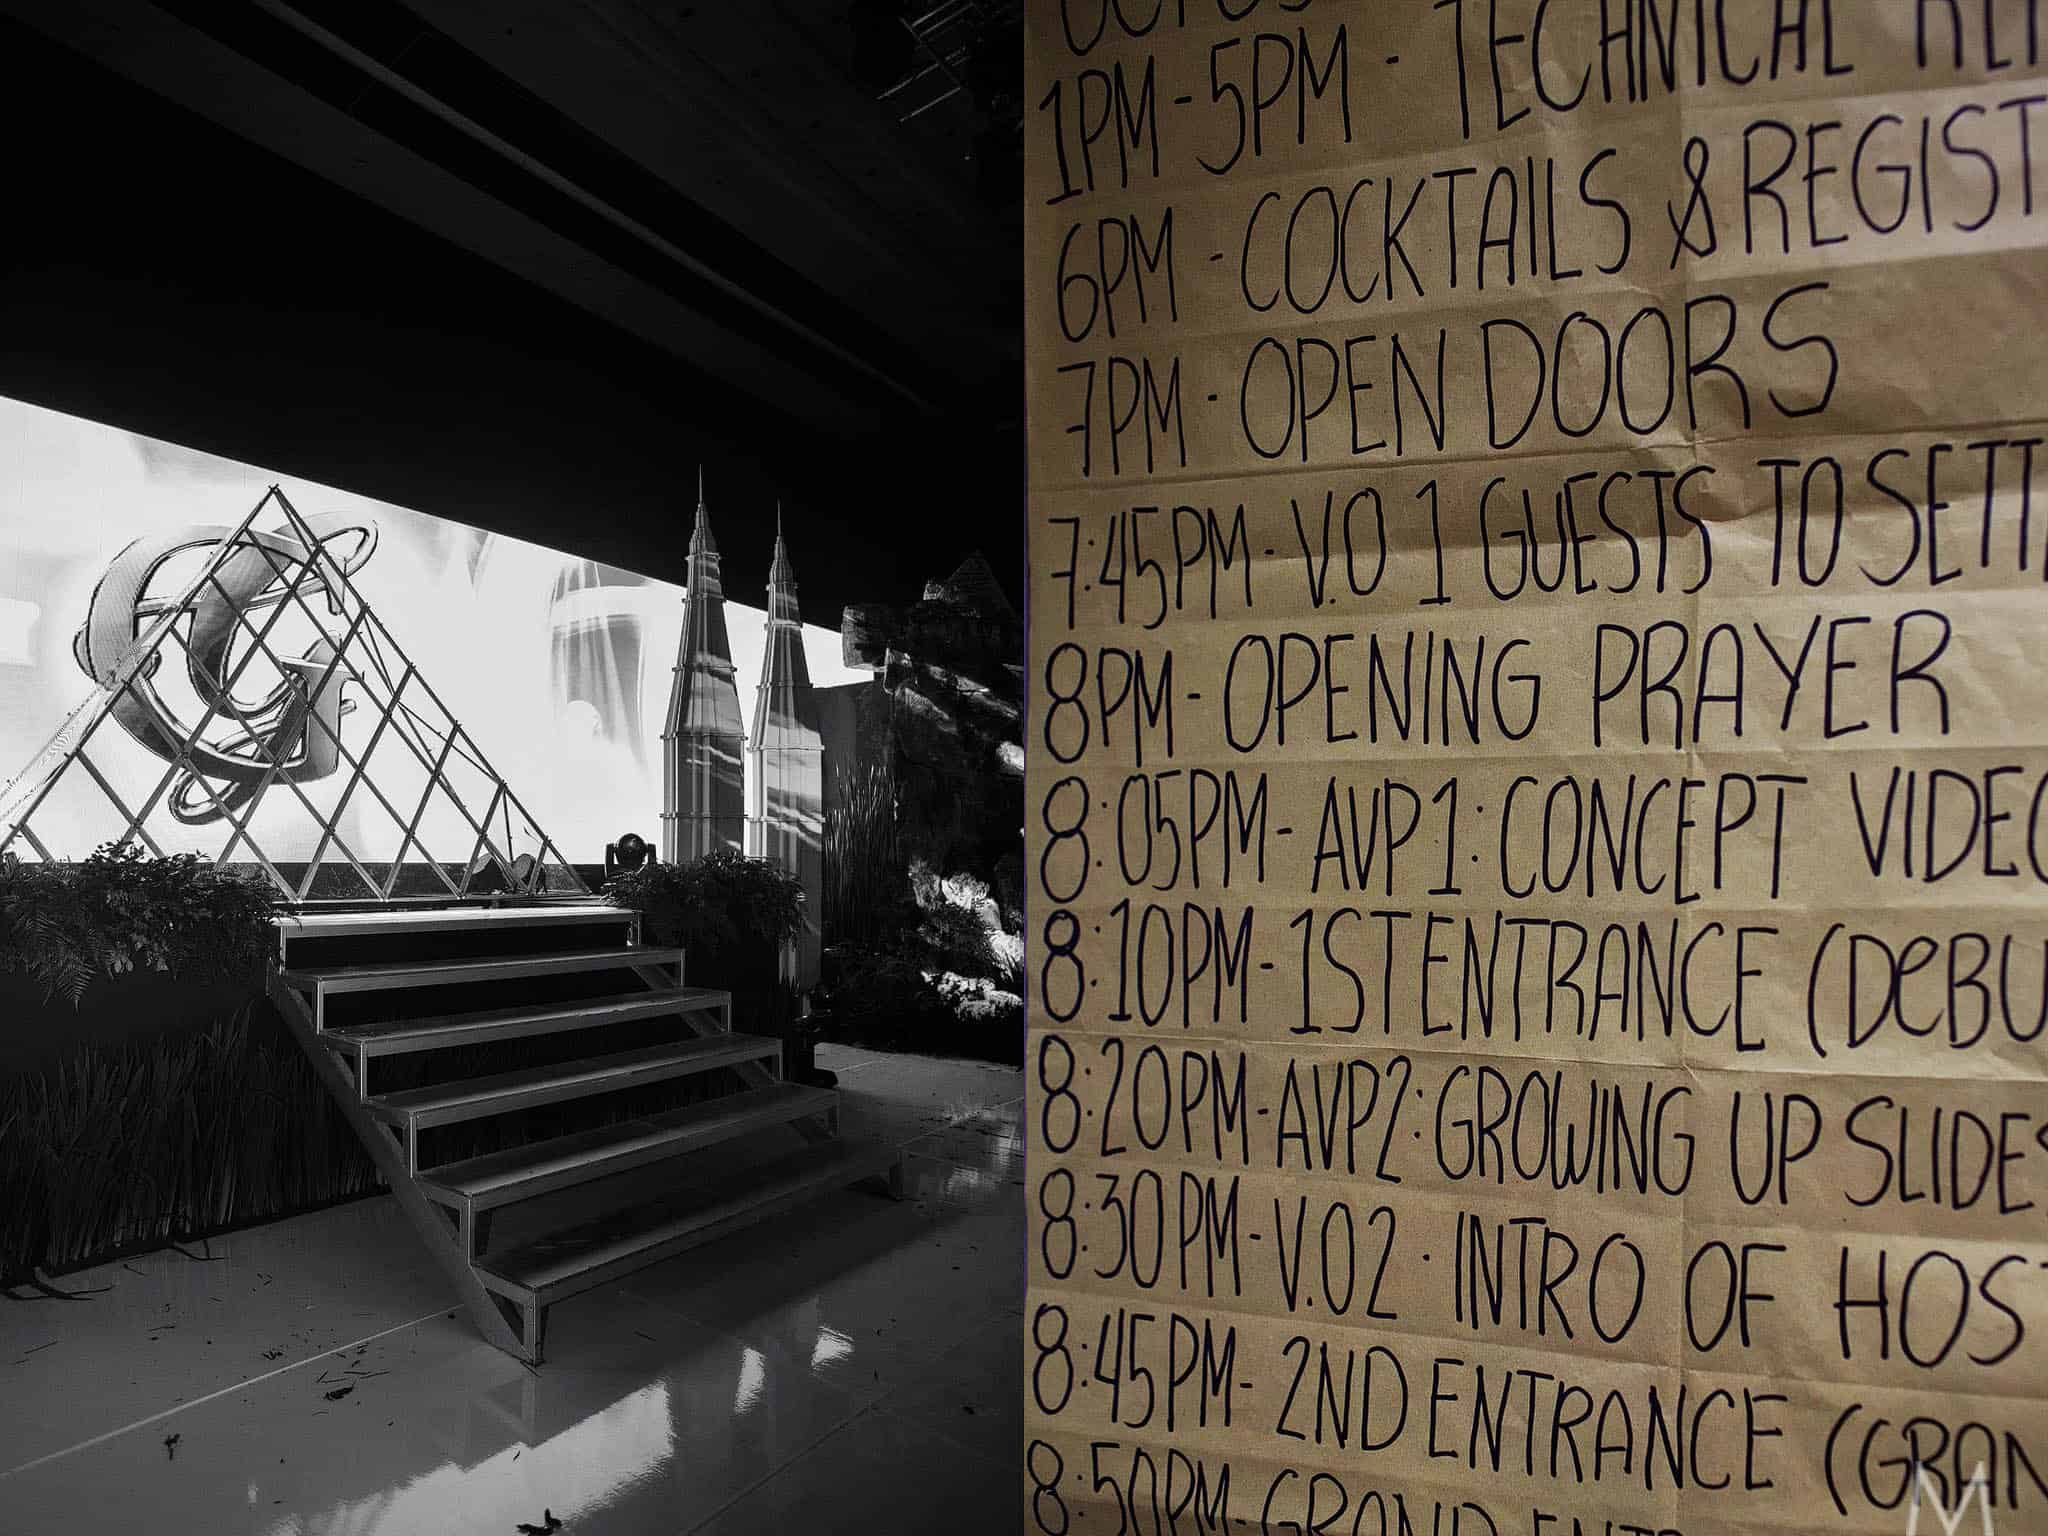 G
1PM - 5PM - TECHNICAL
6PM - COCKTAILS & REGIST
7PM - OPEN DOORS
7:45PM - V.O 1 GUESTS TO SETT
8PM - OPENING PRAYER
8:05PM - AVP 1: CONCEPT VIDEO
8:10PM - 1ST ENTRANCE (DeBU
8:20PM - AVP2: GROWING UP SLIDES
8:30PM - V.O 2 - INTRO OF HOST
8:45PM - 2ND ENTRANCE (GRAN
8:50PM - GRAND ENTR
M